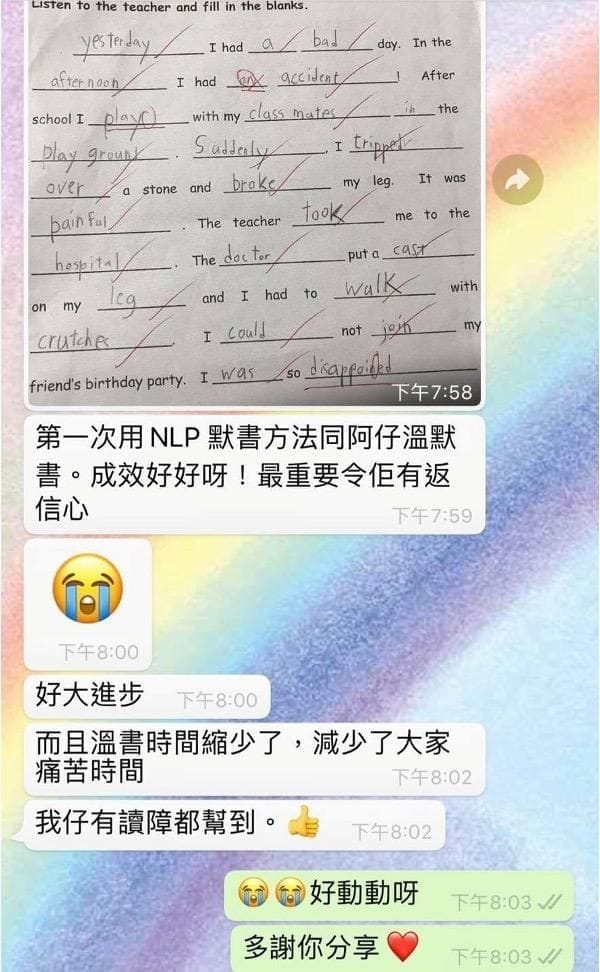 Listen to the teacher and fill in the blanks.
yesterday I had a bad day. In the
afternoon I had an accident! After
school I play with my class mates in the
play ground. Suddenly, I tripped
over a stone and broke my leg. It was
painful. The teacher took me to the
hospital. The doctor put a cast
on my leg and I had to walk with
crutches. I could not join my
friend's birthday party. I was so disappointed
下午7:58
第一次用 NLP 默書方法同阿仔溫默
書。成效好好呀！最重要令佢有返
信心
下午7:59
😭
下午8:00
好大進步 下午8:00
而且溫書時間縮少了，減少了大家
痛苦時間 下午8:02
我仔有讀障都幫到。👍 下午8:02
😭😭好動動呀 下午8:03
多謝你分享❤️ 下午8:03